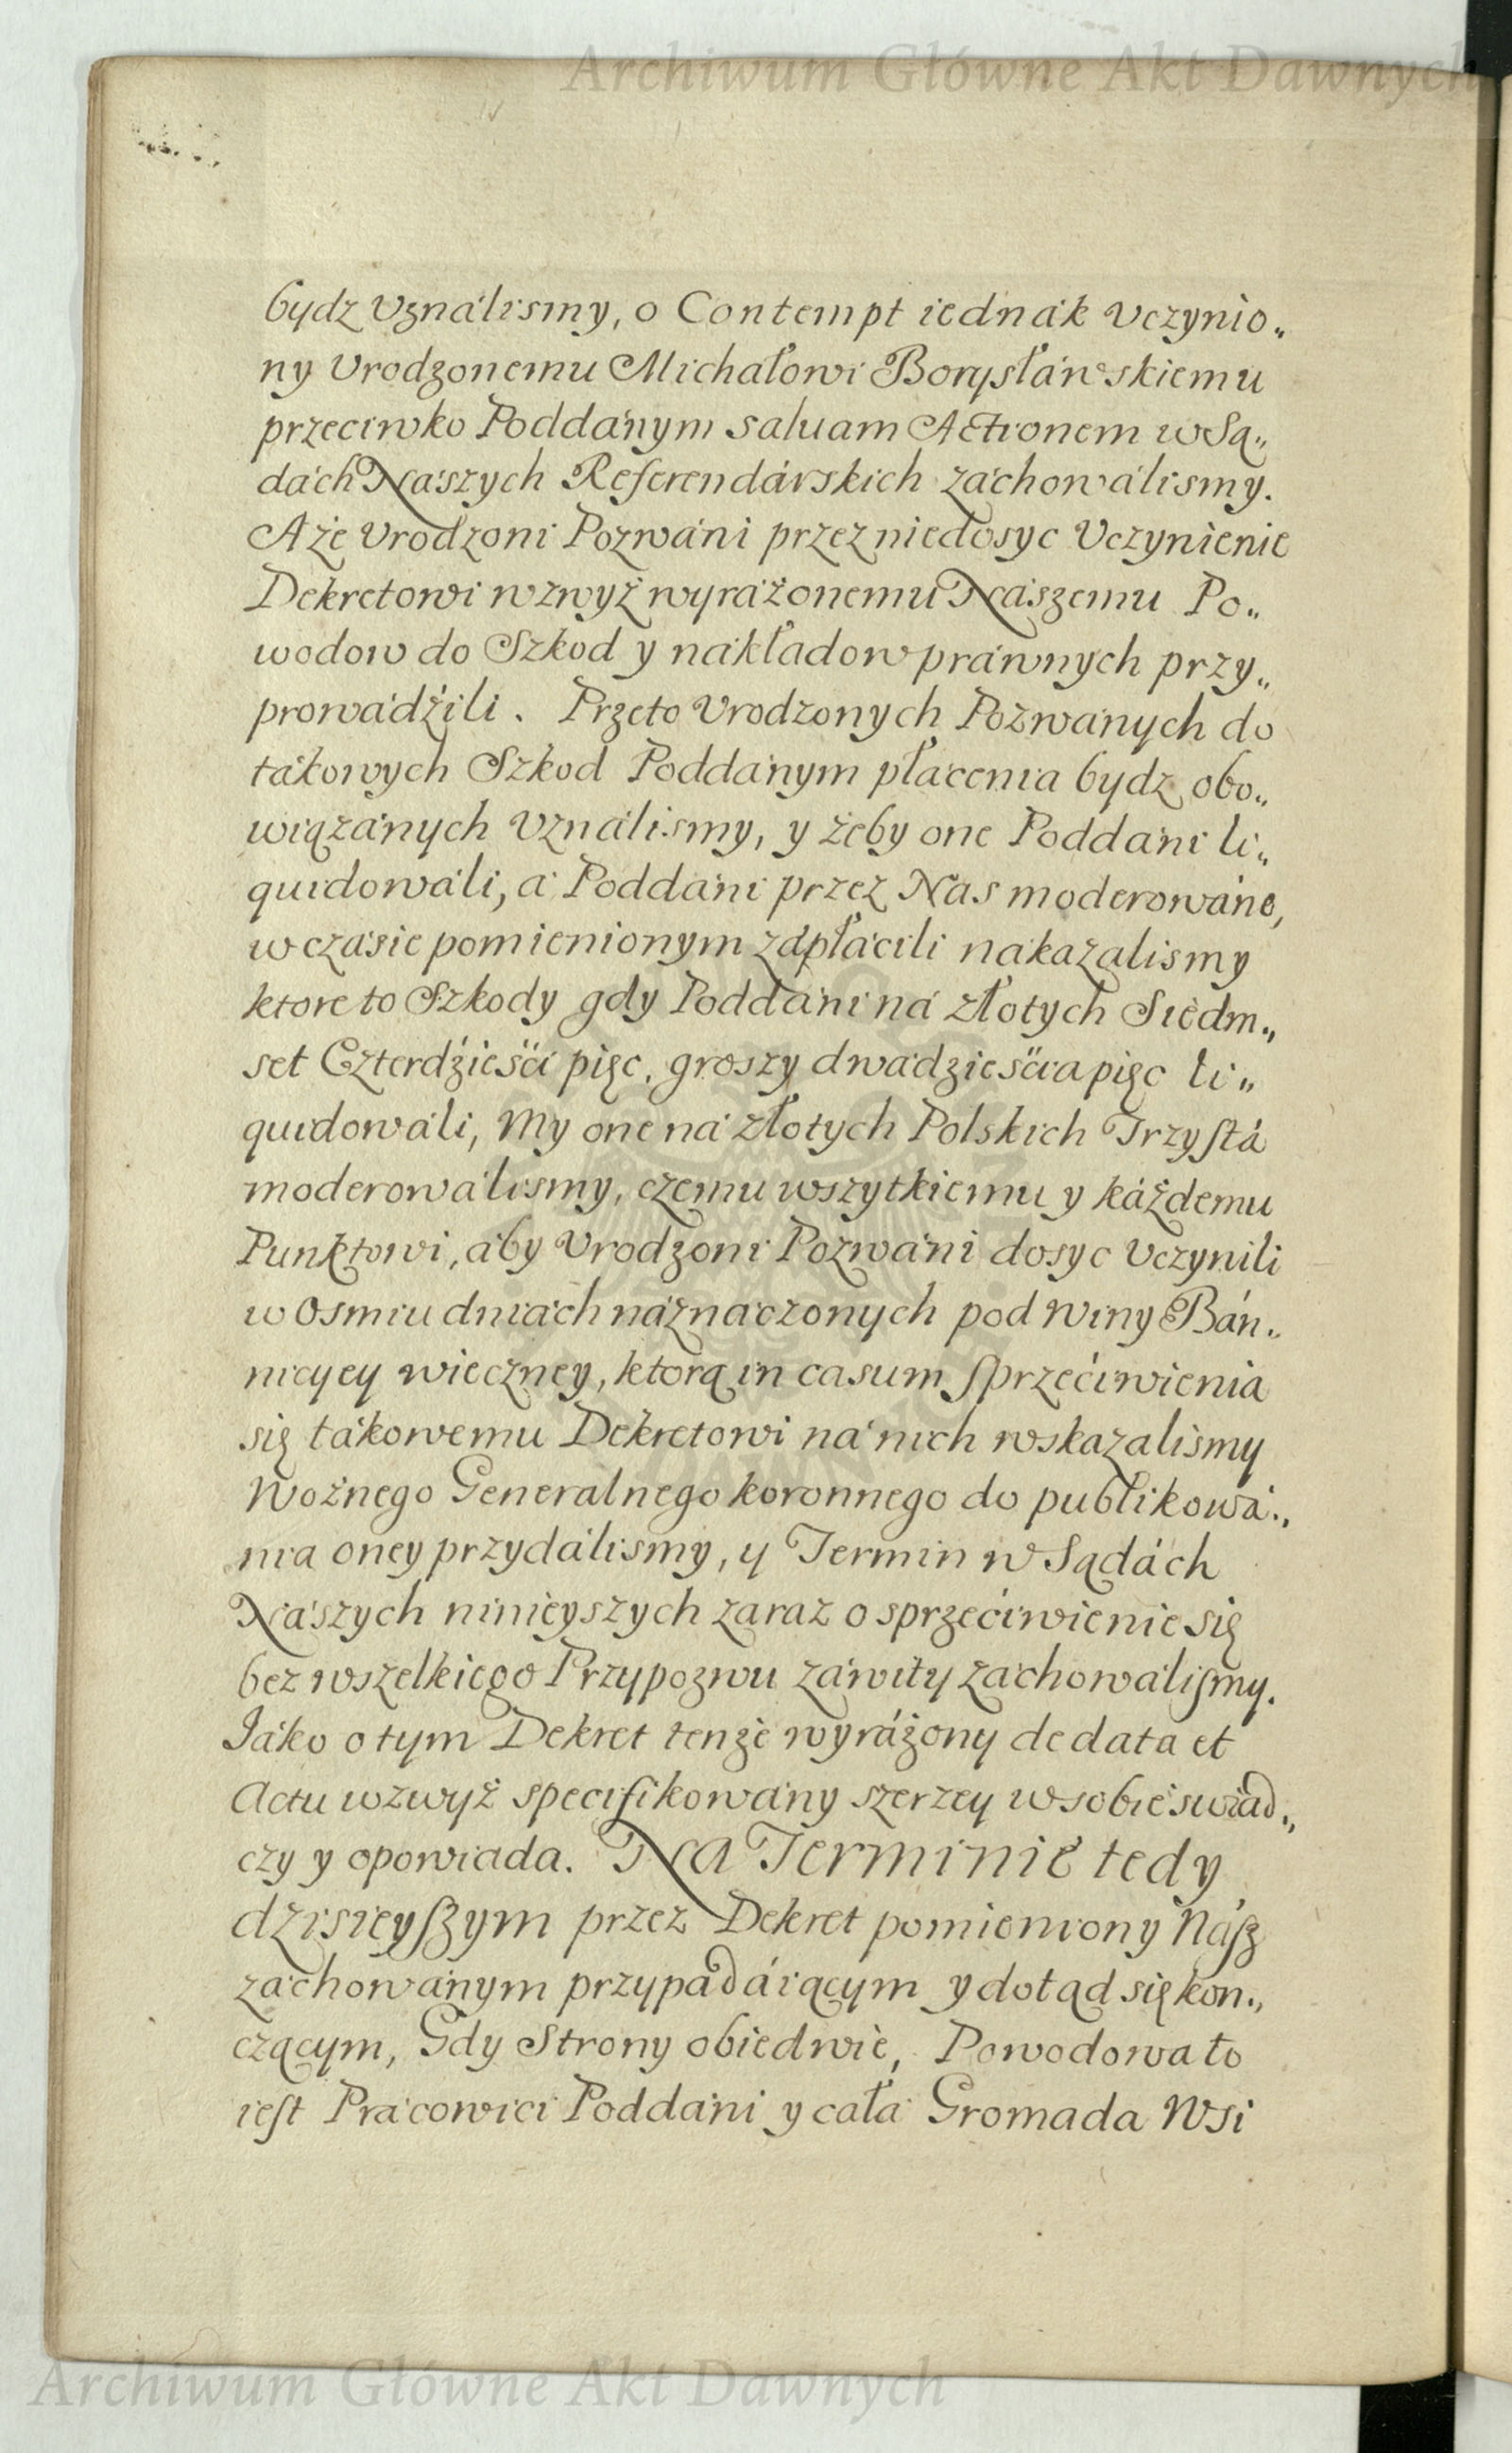 Archiwum Główne Akt Dawnych
bydz Vználismy, o Contempt iednák Vczynio„
ny Vrodzonemu Michałowi Borysłáwskiemu
przeciwko Poddánym saluam Actionem w Są„
dách Nászych Referendárskich záchowálismy.
A że Vrodzoni Pozwáni przez niedosyc Vczynienie
Dekretowi wzwyż wyráżonemu Nászemu Po„
wodow do Szkod y nákładow práwnych przy„
prowádźili. Przeto Vrodzonych Pozwánych do
tákowych Szkod Poddánym płácenia bydz obo„
wiązánych Vználismy, y żeby one Poddáni li„
quidowáli, á Poddáni przez Nas moderowáne,
w czásie pomienionym zápłácili nákazalismy
ktore to Szkody gdy Poddáni ná złotych Siedm„
set Czterdźieści pięc, groszy dwadzieściapięc li„
quidowáli, My one ná złotych Polskich Trzystá
moderowálismy, czemu wszytkiemu y káżdemu
Punktowi, áby Vrodzoni Pozwáni dosyc Vczynili
w Osmiu dniách náznáczonych pod winy Bán„
nicyey wieczney, ktorą in casum sprzećiwienia
się tákowemu Dekretowi ná nich wskazalismy
Woźnego Generalnego koronnego do publikowá„
nia oney przydálismy, y Termin w Sądách
Nászych ninieyszych zaraz o sprzećiwienie się
bez wszelkiego Przypozwu záwity záchowálismy.
Jáko o tym Dekret tenże wyráżony de data et
Actu wzwyż specifikowány szerzey w sobie swiad„
czy y opowiada. Na Terminie tedy
dzisieyszym przez Dekret pomieniony Nász
záchowánym przypadáiącym y dotąd się kon„
czącym, Gdy Strony obiedwie, Powodowa to
iest Prácowici Poddáni y cáła Gromada Wsi
Archiwum Główne Akt Dawnych